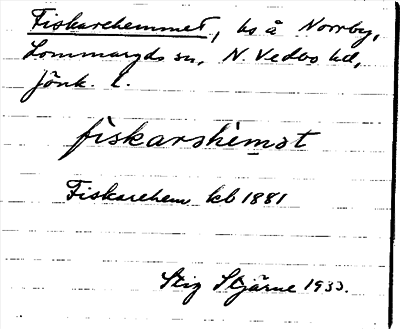 Fiskarehemmet, bs å Norrby,
Lommaryds sn, N. Vedbo hd,
Jönk. l.
fìskarshèmət
Fiskarehem kb 1881
Stig Stjärne 1933.